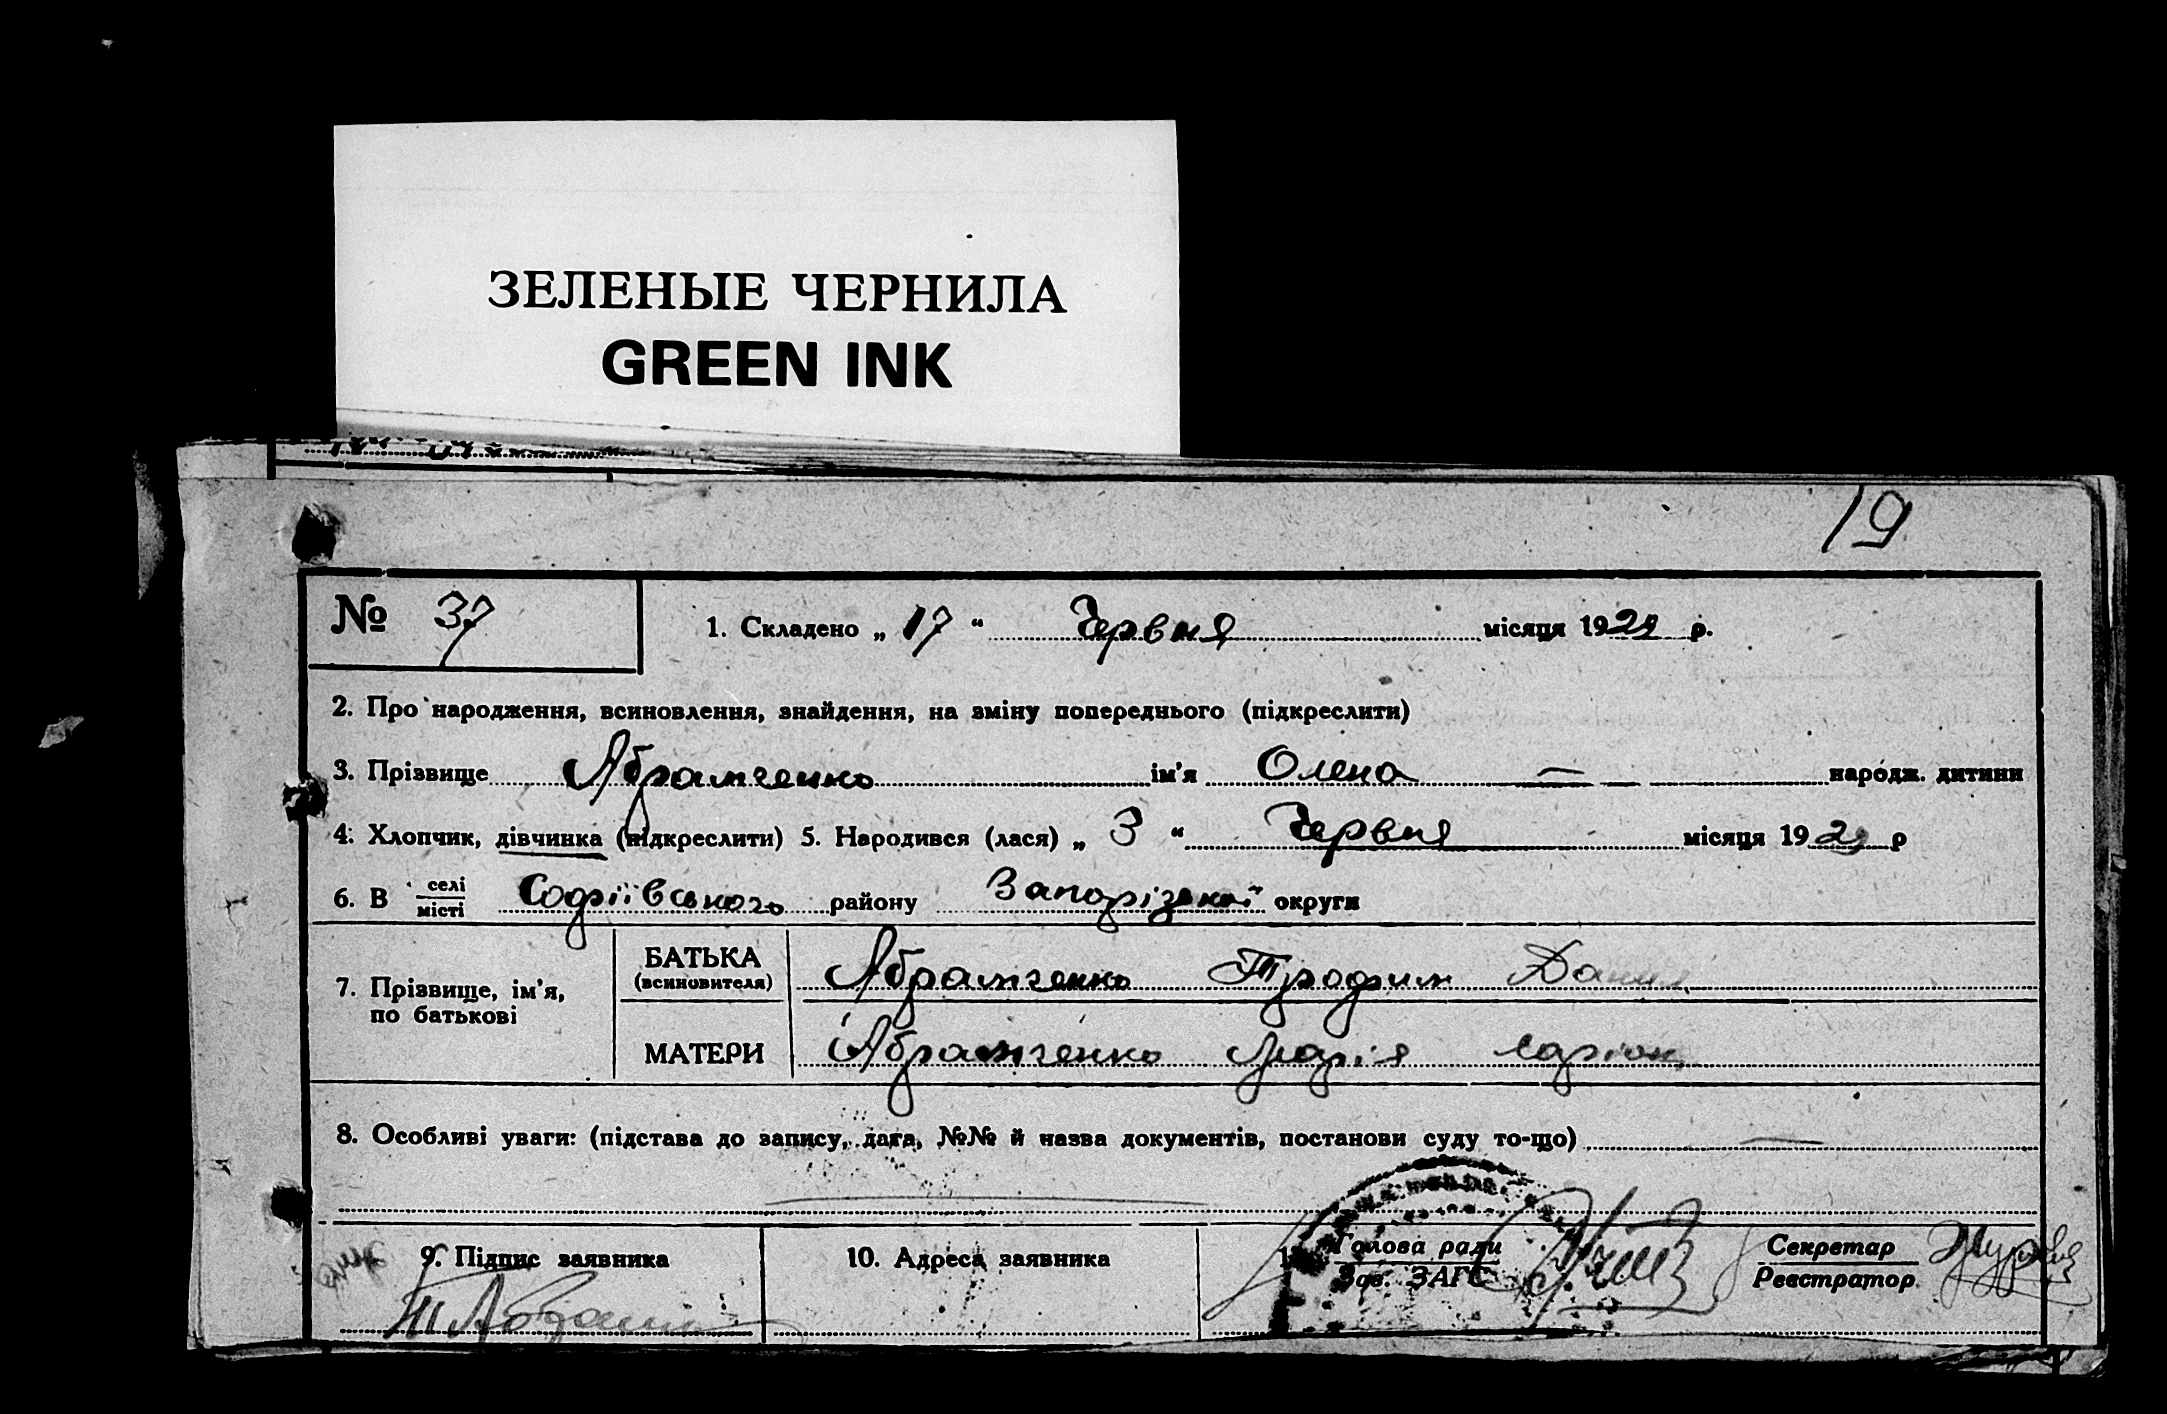 ЗЕЛЕНЫЕ ЧЕРНИЛА
GREEN INK
19
№ 37
1. Складено „ 17 “ Червня місяця 1929 р.
2. Про народження, всиновлення, знайдення, на зміну попереднього (підкреслити)
3. Прізвище Абрамченко ім'я Олена — народж. дитини
4. Хлопчик, дівчинка (підкреслити) 5. Народився (лася) „ 3 “ Червня місяця 1929 р
6. В селі місті Софіївського району Запорізької округи
7. Прізвище, ім'я, по батькові
БАТЬКА (всиновителя) Абрамченко Трофим Данил
МАТЕРИ Абрамченко Марія Ларіон
8. Особливі уваги: (підстава до запису, дата, №№ й назва документів, постанови суду то-що) —
9. Підпис заявника
10. Адреса заявника
Голова ради
Зав. ЗАГС
Секретар
Реєстратор